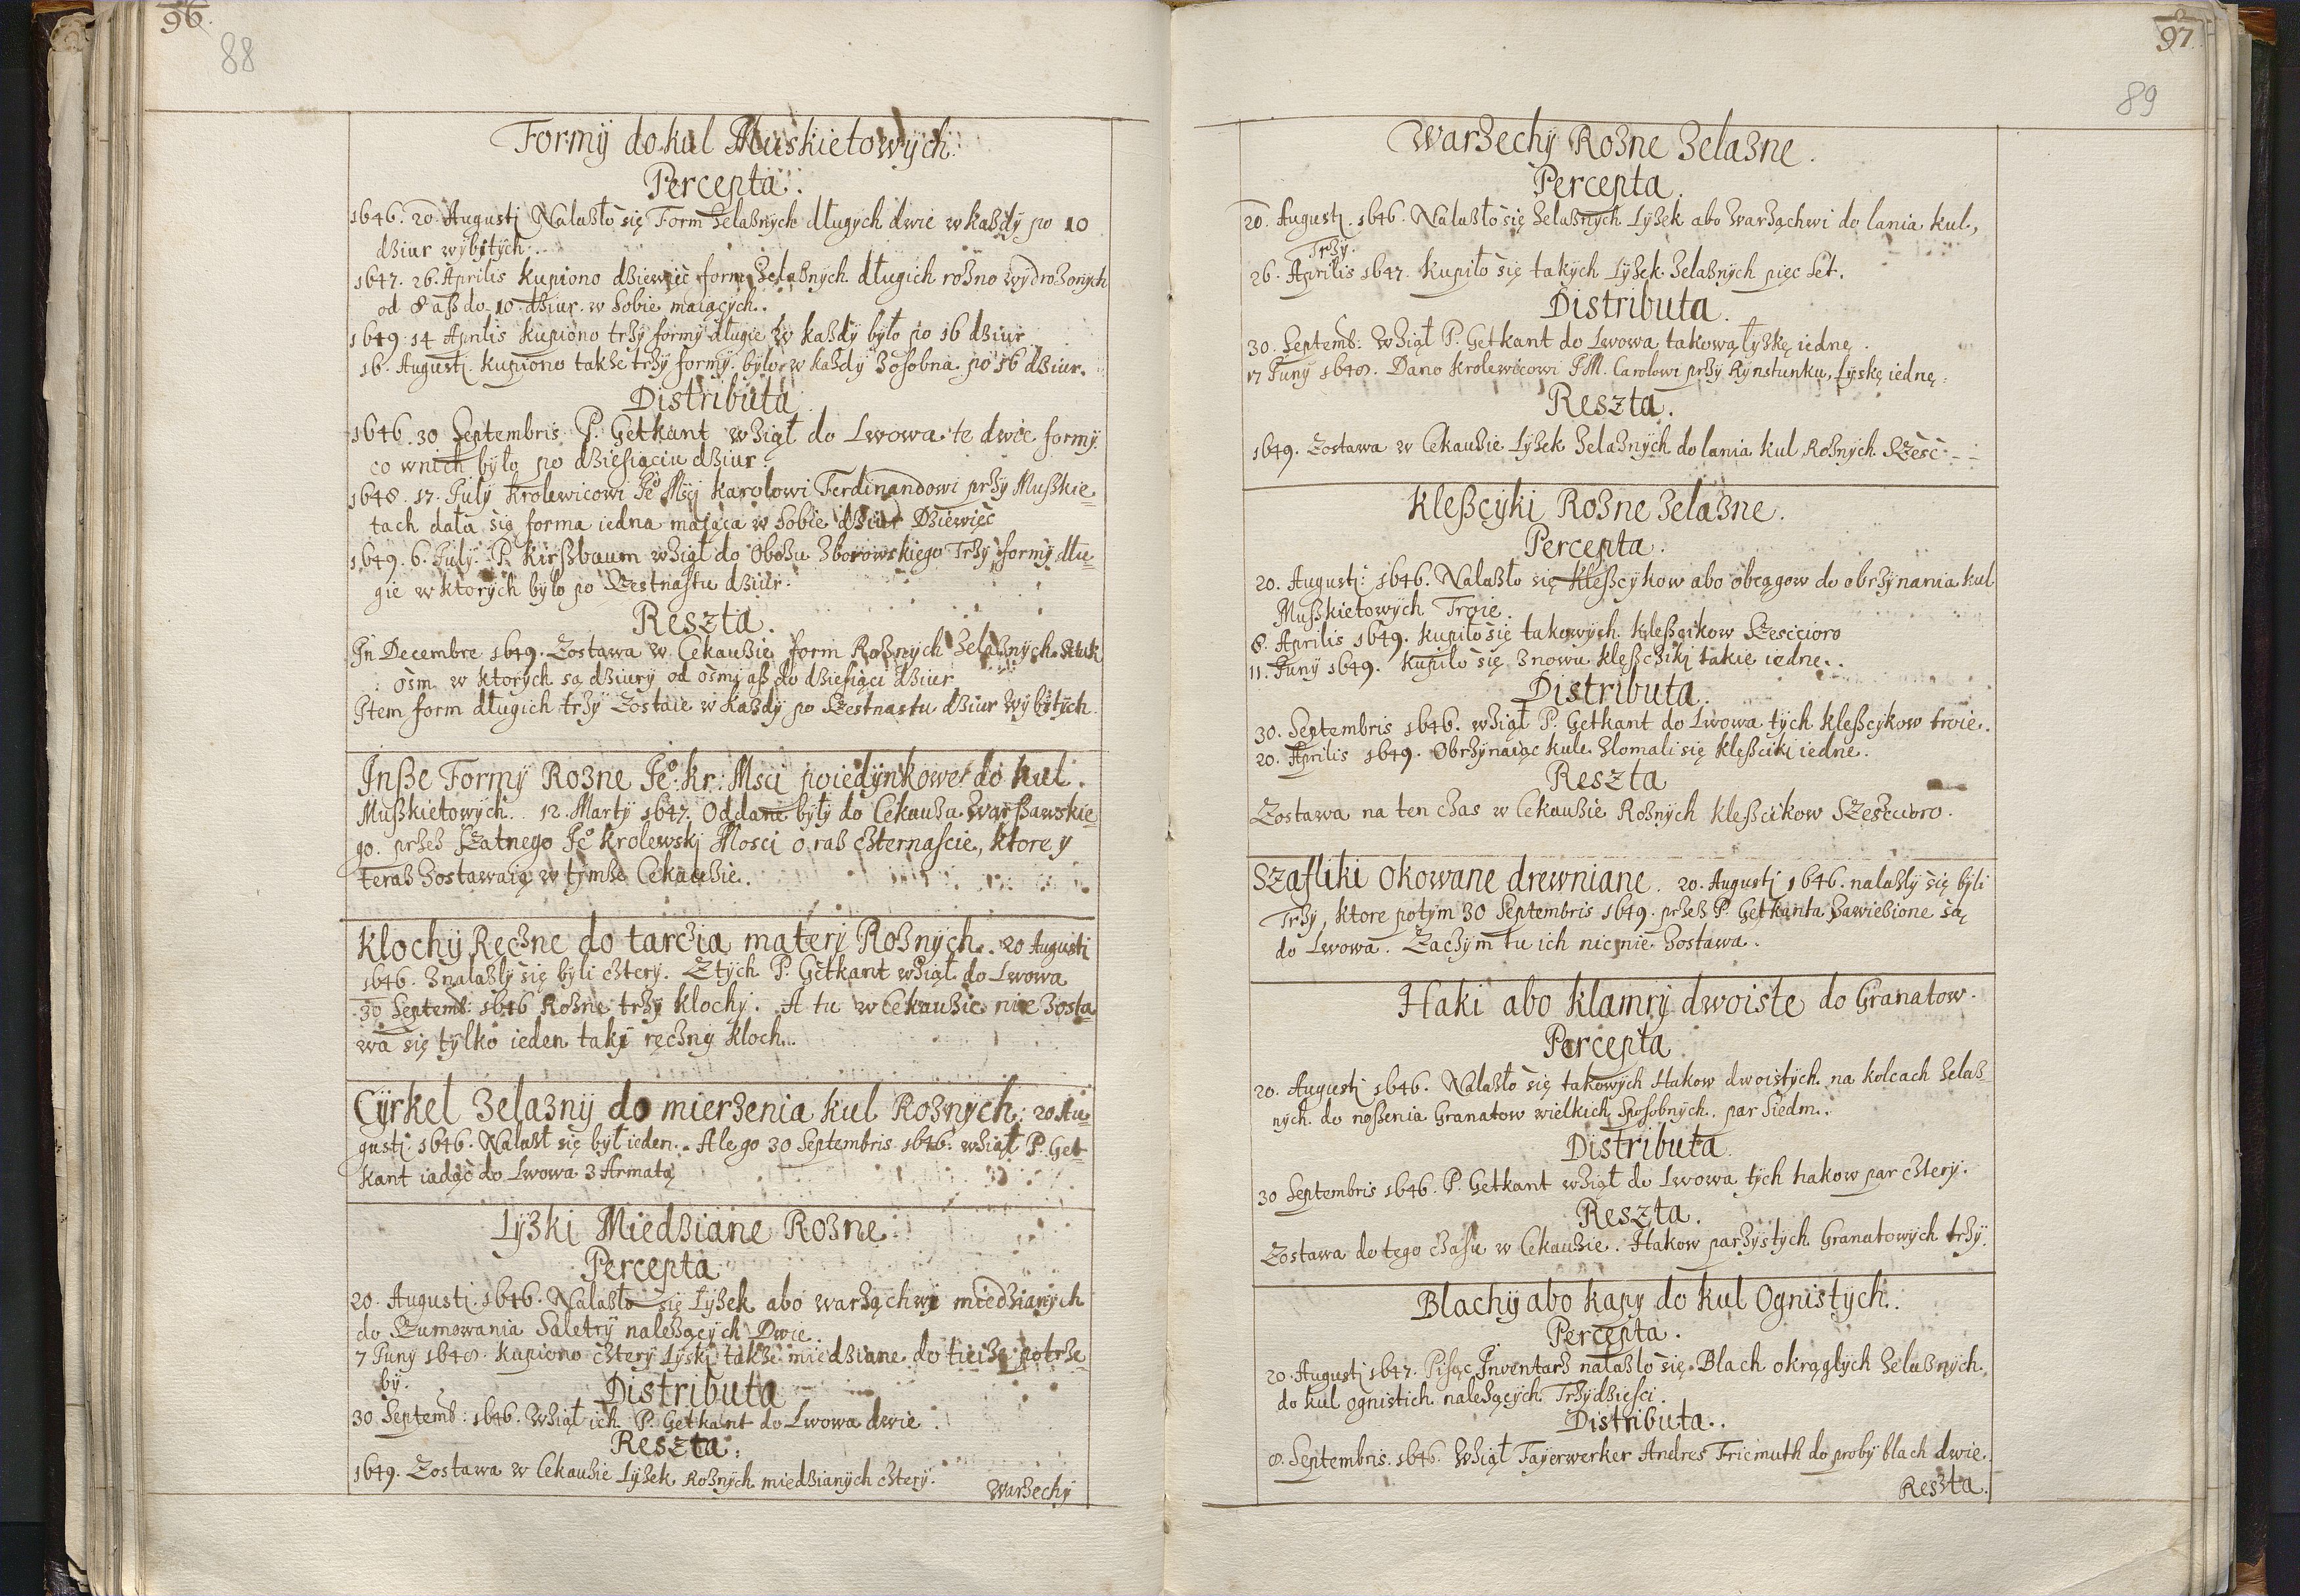 96.
88
Formÿ do kul Muskietowÿch.
Percepta.
1646. 20. Augustj Nalaßło się Form żelaznÿch długÿch dwie w każdÿ po 10
dziur wÿbitÿch.
1647. 26. Aprilis kupiono dziewięc form żelaznÿch długich rożno wÿdrożonÿch
od 8 aß do 10 dziur w sobie maiącÿch.
1649. 14 Aprilis kupiono trzÿ formÿ długie w każdÿ było po 16 dziur
16. Augustj kupiono także trzÿ formÿ. było w każdÿ zosobna po 16 dziur.
Distributa
1646. 30 Septembris P. Getkant wziął do Lwowa te dwie formÿ.
co w nich było po dziesiąciu dziur.
1648. 17. Julÿ Krolewicowi Jeº Mśći Karolowi Ferdinandowi przÿ Mußkie=
tach data się forma iedna maiąca w sobie dziur Dziewięć
1649. 6. Julÿ. P. Kirßbaum wziął do Obozu Zborowskiego Trzÿ formÿ dłu=
gie w ktorÿch było po Szestnastu dziur.
Reszta.
In Decembre 1649. Zostawa w Cekauzie form Rożnÿch żelaznÿch sztuk
ośm w ktorÿch są dziurÿ od ośmi aß do dziesiąci dziur
Item form długich trzÿ zostaie w każdÿ po Szestnastu dziur wÿbitÿch.
Inße Formÿ Rożne Jeº. Kr: Msci poiedÿnkowe do kul.
Mußkietowÿch. 12. Martÿ 1647. Oddane bÿłÿ do Cekauza Warßawskie=
go. przez Szatnego Jeº Krolewskj Mosci oraz czternascie, ktore ÿ
teraz zostawaią w tÿmże Cekauzie.
Klochÿ Ręczne do tarcia materÿ Rożnÿch. 20 Augusti
1646. Znalazlÿ się bÿli czterÿ. Z tÿch P. Getkant wziął do Lwowa
30 Septemb: 1646 Rożne trzÿ klochÿ. A tu w Cekauzie nie zosta=
wa się tÿlko ieden takÿ ręcznÿ kloch.
Cÿrkel żelaznÿ do mierzenia kul Rożnÿch: 20 Au=
gustj 1646. Nalazł się bÿł ieden. Ale go 30 Septembris 1646. wziął P. Get=
kant iadąc do Lwowa z Armatą
Lÿżki Miedziane Rożne
Percepta
20. Augustj. 1646. Nalazło się Lÿżek abo warząchwi miedzianÿch
do Szumowania Saletrÿ należącÿch Dwie.
7 Junÿ 1648. kupiono czterÿ Lÿski także miedziane do tieiże potrze=
bÿ.
Distributa
30 Septemb: 1646. Wziął ich P. Getkant do Lwowa dwie.
Reszta.
1649. Zostawa w Cekauzie Lÿżek Rożnÿch miedzianÿch czterÿ.
Warzechÿ
97.
89
Warzechÿ Rożne żelazne.
Percepta.
20. Augustj. 1646. Nalazło się żelaznÿch Lÿżek abo Warząchwi do lania kul,
Trzÿ.
26. Aprilis 1647. Kupiło się takÿch Lÿżek żelaznÿch pięc set.
Distributa.
30. Septemb: Wziął P. Getkant do Lwowa takową łÿżkę iednę.
17 Junÿ 1648. Dano Krolewicowi JM. Carolowi przÿ Rÿnstunku, Lÿskę iednę.
Reszta.
1649. Zostawa w Cekauzie Lÿżek żelaznÿch do lania kul Rożnÿch Szesć
Kleßcÿki Rożne żelazne.
Percepta.
20. Augustj: 1646. Nalazło się kleßcÿkow abo obcągow do obrzÿnania kul
Mußkietowÿch Troie.
8. Aprilis 1649. Kupiło się takowÿch kleßcikow Szescioro
11. Junÿ 1649. Kupiło się znowu kleßczikj takie iedne.
Distributa.
30. Septembris 1646. wziął P. Getkant do Lwowa tÿch kleßcÿkow troie.
20. Aprilis 1649. Obrzÿnaiąc kule zlomali się kleßcikj iedne.
Reszta
Zostawa na ten czas w Cekauzie Rożnÿch kleßcikow Szesćioro.
Szafliki okowane drewniane. 20. Augustj 1646. nalazlÿ się bÿli
Trzÿ, ktore potÿm 30 Septembris 1649. przez P. Getkanta zawiezione są
do Lwowa. Zaczÿm tu ich nic nie zostawa.
Haki abo klamrÿ dwoiste do Granatow.
Percepta
20. Augustj 1646. Nalazło się takowÿch Hakow dwoistÿch na kolcach żelaz=
nÿch do noßenia Granatow wielkich Sposobnÿch. par Siedm.
Distributa.
30 Septembris 1646. P. Getkant wziął do Lwowa tÿch hakow par czterÿ.
Reszta.
Zostawa do tego czasu w Cekauzie. Hakow parzÿstÿch Granatowÿch trzÿ.
Blachÿ abo kapÿ do kul Ognistÿch.
Percepta.
20. Augustj 1647. Pisąc Inventarz nalazło się Blach okrągłÿch żelaznÿch.
do kul ognistich należącÿch Trzÿdziesci.
Distributa.
8. Septembris. 1646. Wziął Faÿerwerker Andres Friemuth do probÿ blach dwie.
Reszta.